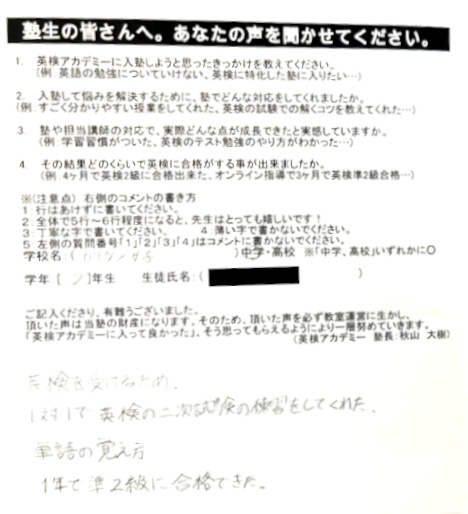 塾生の皆さんへ。あなたの声を聞かせてください。
1. 英検アカデミーに入塾しようと思ったきっかけを教えてください。
(例:英語の勉強についていけない、英検に特化した塾に入りたい…)
2. 入塾して悩みを解決するために、塾でどんな対応をしてくれましたか。
(例:すごく分かりやすい授業をしてくれた、英検の試験での解くコツを教えてくれた…)
3. 塾や担当講師の対応で、実際どんな点が成長できたと実感していますか。
(例 学習習慣がついた、英検のテスト勉強のやり方がわかった…)
4. その結果どのくらいで英検に合格がする事が出来ましたか。
(例:4ヶ月で英検2級に合格出来た、オンライン指導で3ヶ月で英検準2級合格…)
※(注意点) 右側のコメントの書き方
1:行はあけずに書いてください。
2:全体で5行~6行程度になると、先生はとっても嬉しいです!
3:丁寧な字で書いてください。 4:薄い字で書かないでください。
5:左側の質問番号「1」「2」「3」「4」はコメントに書かないでください。
学校名:( )中学・高校 ※「中学、高校」いずれかに○
学年 [ ]年生 生徒氏名:( )
ご記入くださり、有難うございました。
頂いた声は当塾の財産になります。そのため、頂いた声を必ず教室運営に生かし、
「英検アカデミーに入って良かった」、そう思ってもらえるようにより一層努めていきます。
(英検アカデミー 塾長:秋山 大樹)
英検を受けるため。
1対1で英検の二次試験の練習をしてくれた。
単語の覚え方
1年で準2級に合格できた。